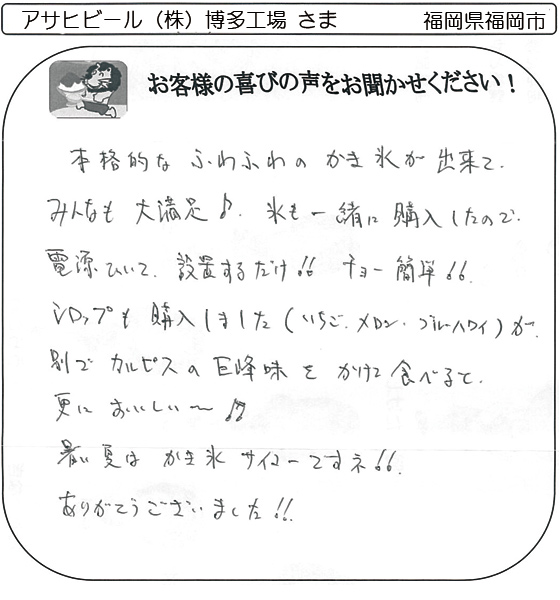 アサヒビール（株）博多工場 さま 福岡県福岡市
お客様の喜びの声をお聞かせください！
本格的な ふわふわの かき氷が 出来て、
みんなも 大満足♪. 氷も一緒に 購入したので、
電源ひいて、設置するだけ!! チョー簡単!!
シロップも 購入しました（いちご、メロン・ブルーハワイ）が、
別で カルピスの 巨峰味を かけて 食べると、
更に おいしい〜♫
暑い夏は かき氷 サイコーですネ!!
ありがとうございました!!